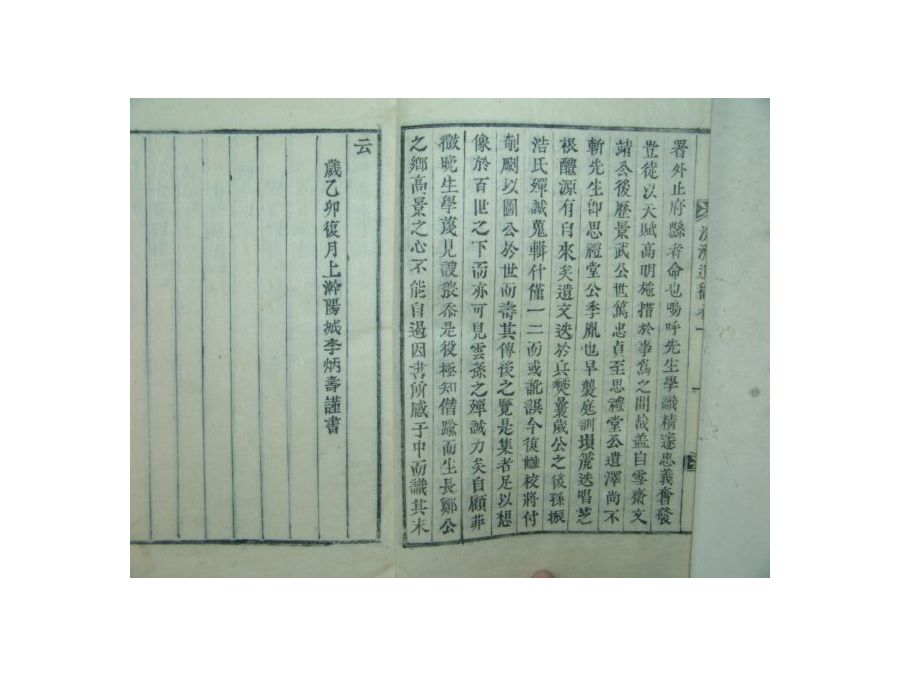 署外止府縣者命也嗚呼先生學識精邃忠義奮發
豈徒以天賦高明施措於事爲之間哉盖自雪齋文
靖公後歷景武公世篤忠貞至思禮堂公遺澤尚不
斬先生卽思禮堂公季胤也早襲庭訓塤箎迭唱芝
根醴源有自來矣遺文迭於兵燹曩歲公之後孫振
浩氏殫誠蒐輯什僅一二而或訛誤今復讎校將付
剞劂以圖公於世而壽其傳後之覽是集者足以想
像於百世之下而亦可見雲孫之殫誠力矣自顧菲
微晩生學蔑見謏叅是役極知僭踰而生長鄭公
之鄕高景之心不能自遏因書所感于中而識其末
云
歲乙卯復月上澣陽城李炳壽謹書